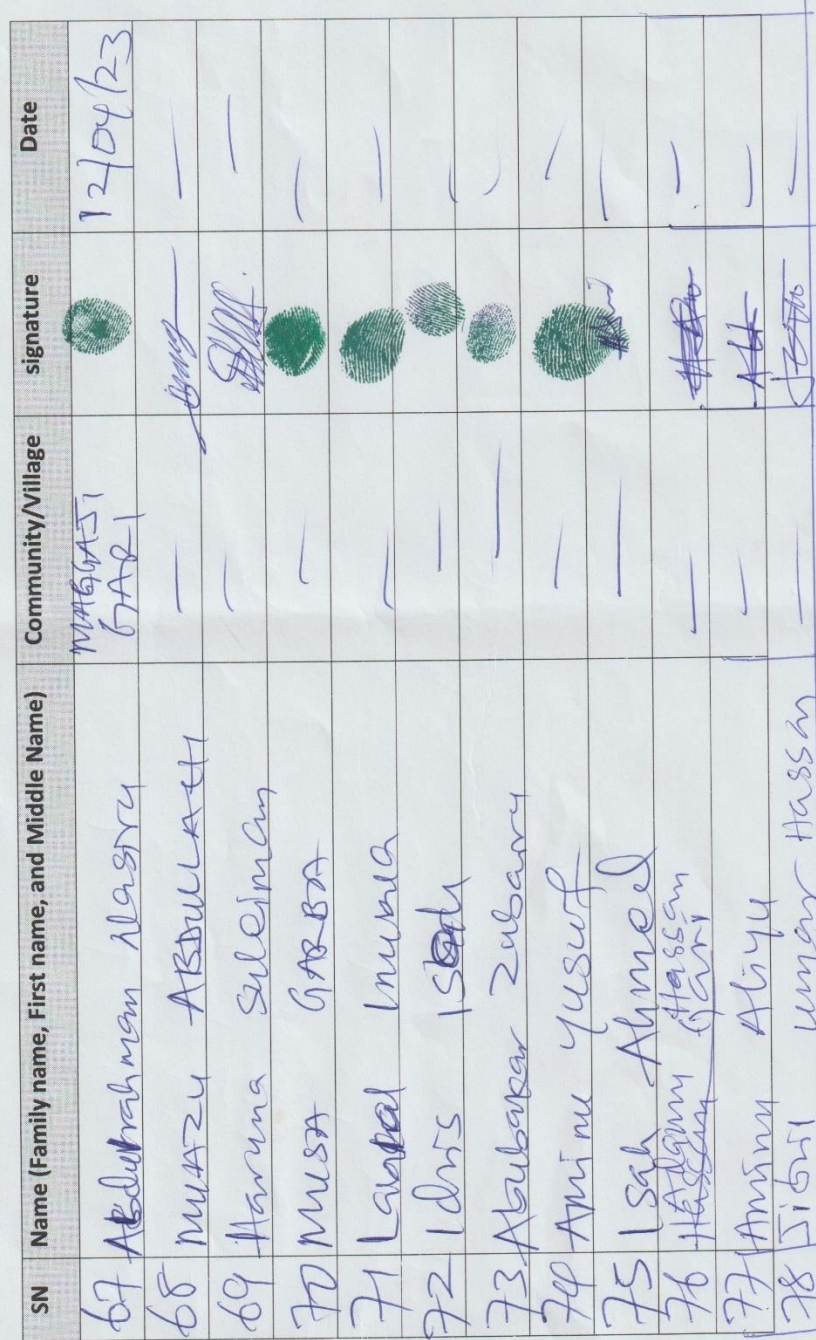 SN Name (Family name, First name, and Middle Name) Community/Village signature Date
67 Abdulrahman Nasiru MAGGAJI GARI 12/04/23
68 MUAZU ABDULLAHI — —
69 Haruna Suleiman — —
70 MUSA GARBA — —
71 Lawal Inuwa — —
72 Idris Isah — —
73 Abubakar Zubairu — —
74 Aminu Yusuf — —
75 Isah Ahmed — —
76 Adamu Hassan
Hassan Gari — —
77 Aminu Aliyu — —
78 Jibril Umar Hassan — —